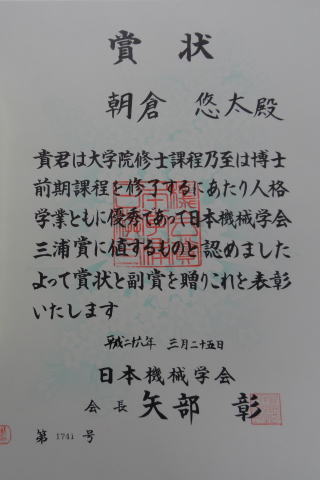 賞状
朝倉 悠太殿
貴君は大学院修士課程乃至は博士
前期課程を修了するにあたり人格
学業ともに優秀であって日本機械学会
三浦賞に値するものと認めました
よって賞状と副賞を贈りこれを表彰
いたします
平成二十八年 三月二十五日
日本機械学会
会長 矢部 彰
第 1741 号